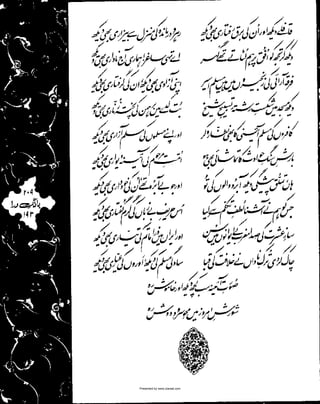 قافلے دیکھ اور ان کی برق رفتاری بھی دیکھ رہروِ درماندہ کی منزل سے بیزاری بھی دیکھ
دیکھ کر تجھ کو افق پر ہم لٹاتے تھے گہر اے تہی ساغر! ہماری آج ناداری بھی دیکھ
فرقہ آرائی کی زنجیروں میں ہیں مسلم اسیر اپنی آزادی بھی دیکھ، ان کی گرفتاری بھی دیکھ
دیکھ مسجد میں شکستِ رشتۂ تسبیحِ شیخ بت کدے میں برہمن کی پختہ زناری بھی دیکھ
کافروں کی مسلم آئینی کا بھی نظارہ کر اور اپنے مسلموں کی مسلم آزاری بھی دیکھ
بارشِ سنگِ حوادث کا تماشائی بھی ہو امتِ مرحوم کی آئینہ دیواری بھی دیکھ
ہاں، تملق پیشگی دیکھ آبرو والوں کی تو اور جو بے آبرو تھے، ان کی خودداری بھی دیکھ
جس کو ہم نے آشنا لطفِ تکلم سے کیا اس حریفِ بے زباں کی گرم گفتاری بھی دیکھ
سازِ عشرت کی صدا مغرب کے ایوانوں میں سن اور ایراں میں ذرا ماتم کی تیاری بھی دیکھ
چاک کر دی ترکِ ناداں نے خلافت کی قبا سادگی مسلم کی دیکھ، اوروں کی عیاری بھی دیکھ
صورتِ آئینہ سب کچھ دیکھ اور خاموش رہ
شورشِ امروز میں محوِ سرودِ دوش رہ
۲۰۹
بانگِ درا
۱۹۳